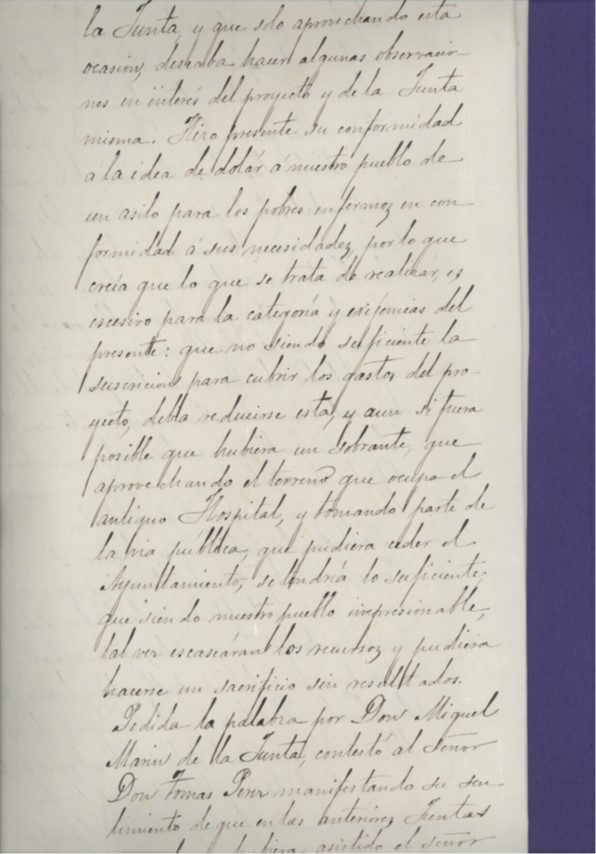 la Junta, y que solo aprovechando esta
ocasion, deseaba hacer algunas observacio-
nes en interés del proyecto y de la Junta
misma. Hizo presente su conformidad
á la idea de dotar á nuestro pueblo de
un asilo para los pobres enfermoz en con
formidad á sus necesidadez, por lo que
creia que lo que se trata de realizar, es
escesivo para la categoria y exijencias del
presente: que no siendo suficiente la
suscricion para cubrir los gastos del pro-
yecto, debia reducirse esta, y aun si fuera
posible que hubiera un sobrante, que
aprovechando el terreno que ocupa el
antiguo Hospital, y tomando parte de
la via pública, que pudiera ceder el
Ayuntamiento, se tendria lo suficiente,
que siendo nuestro pueblo impresionable,
tal vez escaseáran los recursoz y pudiera
hacerse un sacrificio sin resultados.
Pedida la palabra por Don Miguel
Marin de la Junta, contestó al Señor
Don Tomas Perez manifestando su sen-
timiento de que en las anteriorez Juntas
hubiera asistido el señor